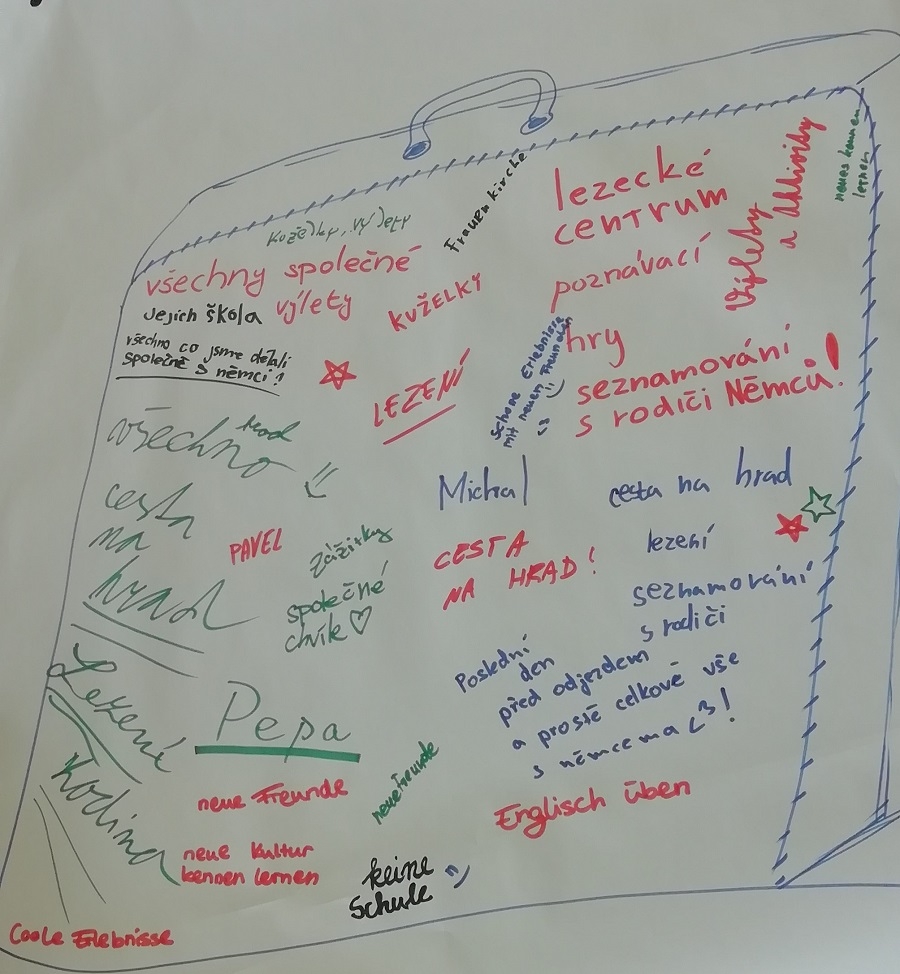 Kuželky, výlety
Frauenkirche
lezecké
centrum
Výlety
a aktivity
neues kennen
lernen
všechny společné
výlety
Jejich škola
KUŽELKY
poznávací
hry
všechno co jsme dělali
společně s němci!
LEZENÍ
Schöne Erlebnisse
mit neuen Freunden
<3
seznamování
s rodiči Němců!
všechno
cesta
na
hrad
PAVEL
zážitky
společné
chvíle ♡
Michal
CESTA
NA HRAD!
cesta na hrad
lezení
seznamování
s rodiči
Poslední
den
před odjezdem
a prostě celkově vše
s němcema <3!
Lezení
Rodina
Pepa
neue Freunde
neue Freunde
Englisch üben
neue Kultur
kennen lernen
keine
Schule
Coole Erlebnisse